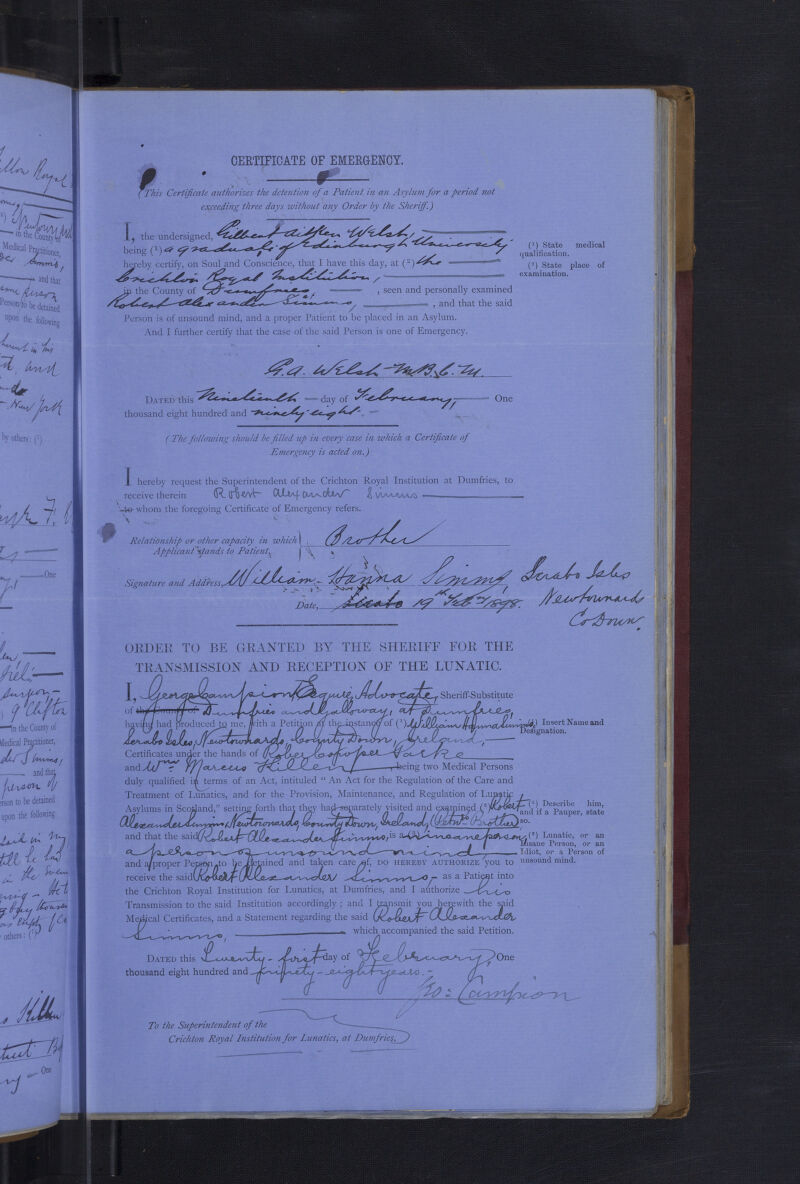 CERTIFICATE OF EMERGENCY.
(This Certificate authorizes the detention of a Patient in an Asylum for a period not
exceeding three days without any Order by the Sheriff.)
I, the undersigned, Gilbert Aitken Welsh,
being (¹) a graduate of Edinburgh University
hereby certify, on Soul and Conscience, that I have this day, at (²) the
Crichton Royal Institution,
in the County of Dumfries, , seen and personally examined
Robert Alexander Simms, , and that the said
Person is of unsound mind, and a proper Patient to be placed in an Asylum.
And I further certify that the case of the said Person is one of Emergency.
(¹) State medical
qualification.
(²) State place of
examination.
G. A. Welsh M.B. C.M.
DATED this Nineteenth day of February, One
thousand eight hundred and ninety eight.
(The following should be filled up in every case in which a Certificate of
Emergency is acted on.)
I hereby request the Superintendent of the Crichton Royal Institution at Dumfries, to
receive therein Robert Alexander Simms
to whom the foregoing Certificate of Emergency refers.
Relationship or other capacity in which
Applicant stands to Patient, Brother
Signature and Address, William Hanna Simms, Scrabo Isles
Newtownards
Co Down.
Date, 19th Feby 1898.
ORDER TO BE GRANTED BY THE SHERIFF FOR THE
TRANSMISSION AND RECEPTION OF THE LUNATIC.
I, George Campion Esquire, Advocate, Sheriff-Substitute
of the County of Dumfries and Galloway, at Dumfries,
having had produced to me, with a Petition at the instance of (¹) William Hanna Simms,
Scrabo Isles, Newtownards, County Down, Ireland,
Certificates under the hands of
and Wm Marcus Killen being two Medical Persons
duly qualified in terms of an Act, intituled "An Act for the Regulation of the Care and
Treatment of Lunatics, and for the Provision, Maintenance, and Regulation of Lunatic
Asylums in Scotland," setting forth that they had separately visited and examined (²) Robert
Alexander Simms, Newtownards, County Down, Ireland, Brother,
and that the said Robert Alexander Simms, is a (³) insane person
a person of unsound mind
and a proper Person to be detained and taken care of, DO HEREBY AUTHORIZE you to
receive the said Robert Alexander Simms, as a Patient into
the Crichton Royal Institution for Lunatics, at Dumfries, and I authorize his
Transmission to the said Institution accordingly; and I transmit you herewith the said
Medical Certificates, and a Statement regarding the said Robert Alexander
Simms, which accompanied the said Petition.
(¹) Insert Name and
Designation.
(²) Describe him,
and if a Pauper, state
so.
(³) Lunatic, or an
Insane Person, or an
Idiot, or a Person of
unsound mind.
DATED this Twenty-first day of February, One
thousand eight hundred and ninety-eight years.
Geo: Campion
To the Superintendent of the
Crichton Royal Institution for Lunatics, at Dumfries.